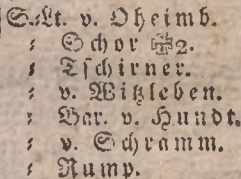 S.-Lt. v. Oheimb.
: Schor ✠2.
: Tschirner.
: v. Witzleben.
: Bar. v. Hundt.
: v. Schramm.
: Rump.